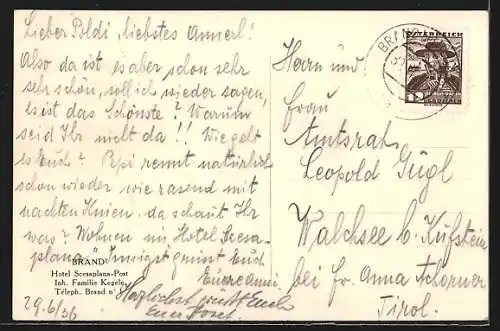 Lieber Poldi, liebstes Annerl!
Also da ist es aber schon sehr
sehr schön, soll ich wieder sagen,
es ist das Schönste? Warum
seid Ihr nicht da!! Wie geht
es Euch? Pepi rennt natürlich
schon wieder wie rasend mit
nackten Knien. da schaut Ihr
was? Wohnen im Hotel Scesa-
plana. Innigst grüsst Euch
Eure Anni.
Herzlichst grüsst Euch
Euer Josef.
BRAND
Hotel Scesaplana-Post
Inh. Familie Kegele
Téleph. Brand n° 1
29.6/36
ÖSTERREICH
BRAN
Herrn und
Frau
Amtsrat
Leopold Gügl
Walchsee b. Kufstein
bei Fr. Anna Achorner
Tirol.